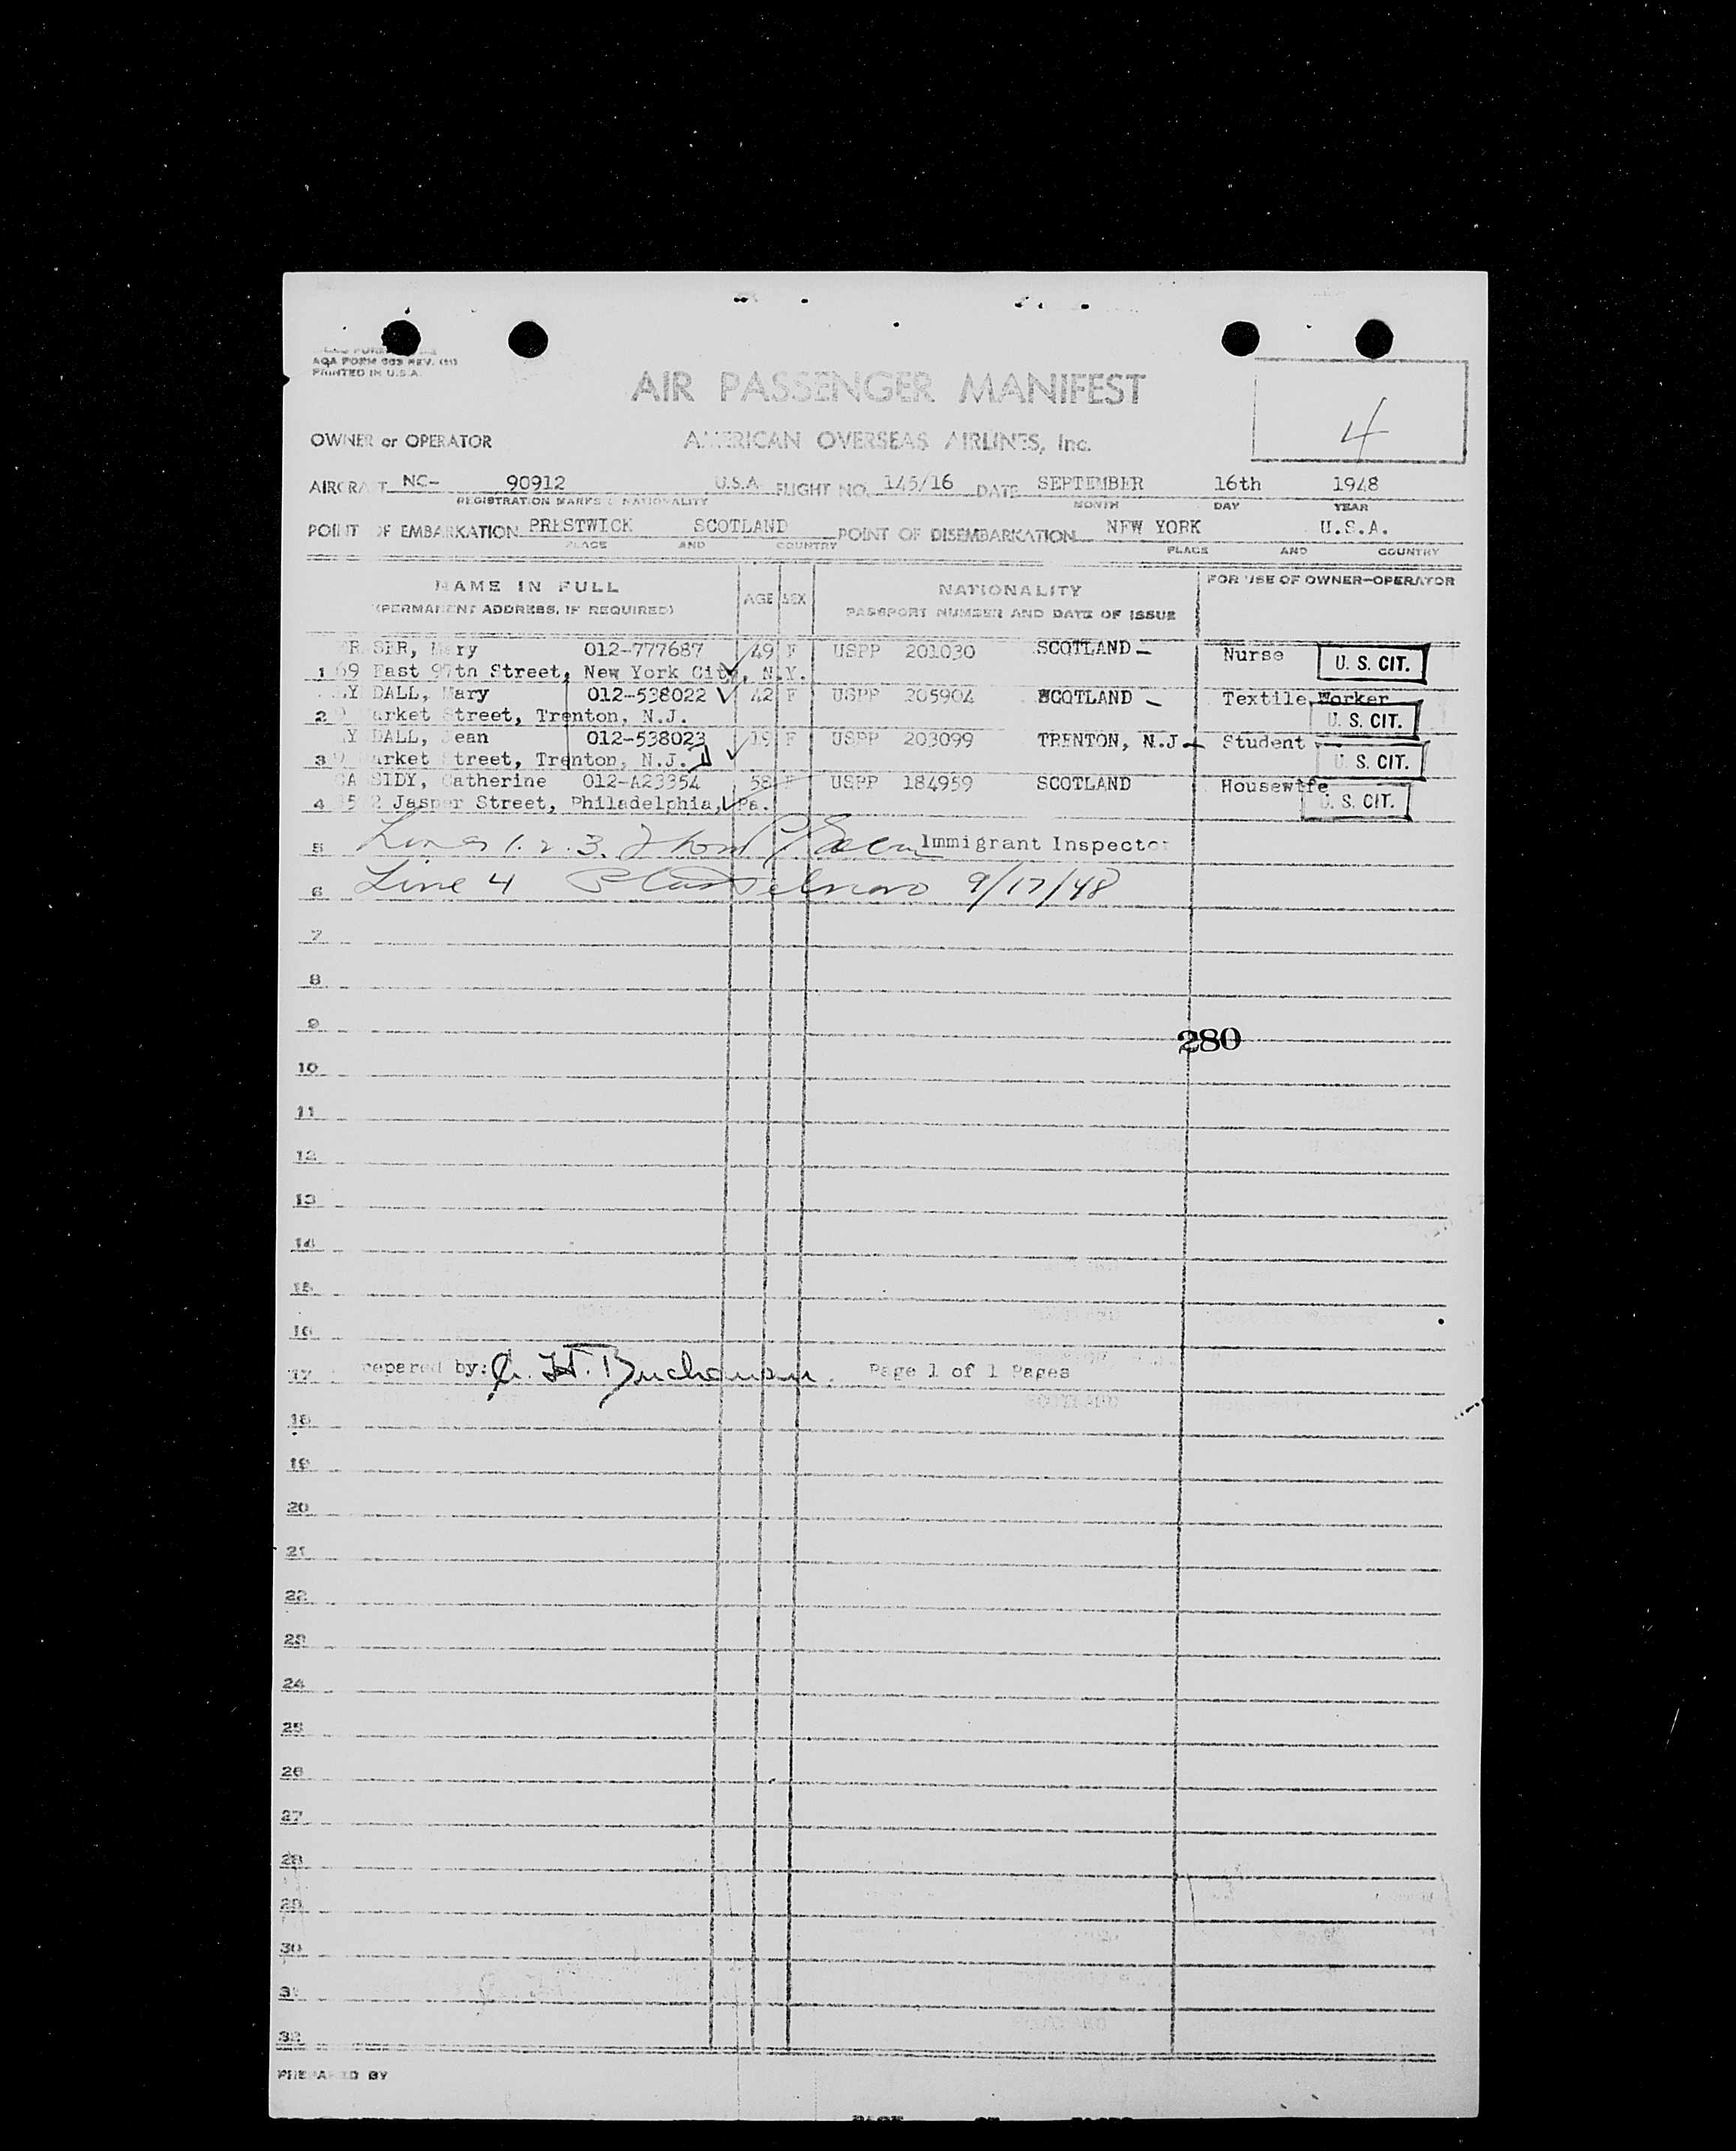 AOA FORM 003 REV.
PRINTED IN U.S.A.
AIR PASSENGER MANIFEST
4
OWNER or OPERATOR AMERICAN OVERSEAS AIRLINES, Inc.
AIRCRAFT NC- 90912 U.S.A. FLIGHT NO. 145/16 DATE SEPTEMBER 16th 1948
REGISTRATION MARKS & NATIONALITY MONTH DAY YEAR
POINT OF EMBARKATION PRESTWICK SCOTLAND POINT OF DISEMBARKATION NEW YORK U.S.A.
PLACE AND COUNTRY PLACE AND COUNTRY
NAME IN FULL AGE SEX NATIONALITY FOR USE OF OWNER-OPERATOR
(PERMANENT ADDRESS, IF REQUIRED) PASSPORT NUMBER AND DATE OF ISSUE
FRASER, Mary 012-777687 49 F USPP 201030 SCOTLAND Nurse U. S. CIT.
1 69 East 97th Street, New York City, N.Y.
DALL, Mary 012-538022 42 F USPP 205904 SCOTLAND Textile Worker
2 Market Street, Trenton, N.J. U. S. CIT.
DALL, Jean 012-538023 19 F USPP 203099 TRENTON, N.J. Student
3 Market Street, Trenton, N.J. U. S. CIT.
CASSIDY, Catherine 012-A23354 58 F USPP 184959 SCOTLAND Housewife
4 Jasper Street, Philadelphia, Pa. U. S. CIT.
5 Lines 1. 2. 3. Immigrant Inspector
6 Line 4 9/17/48
7
8
9
280
10
11
12
13
14
15
16
17 Prepared by: Buchanan. Page 1 of 1 Pages
18
19
20
21
22
23
24
25
26
27
28
29
30
31
32
PREPARED BY